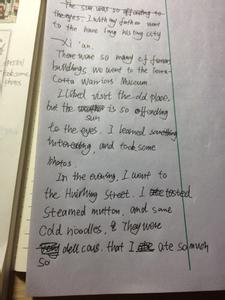 The sun was so offending to
the eyes. I with my father went
to the have long history city
—Xi'an.
There were so many of famous
buildings we went to the Terra-
Cotta Warriors Museum.
I liked visit the old place,
but the is so offending
sun
to the eyes. I learned something
interesting, and took some
photos.
In the evening, I went to
the Huimin Street. I tasted
Steamed mutton, and some
Cold noodles, & They were
delicous. that I ate so much
so
took some
photos